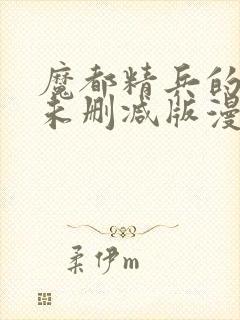 魔都精兵的
未删减版漫
柔伊m